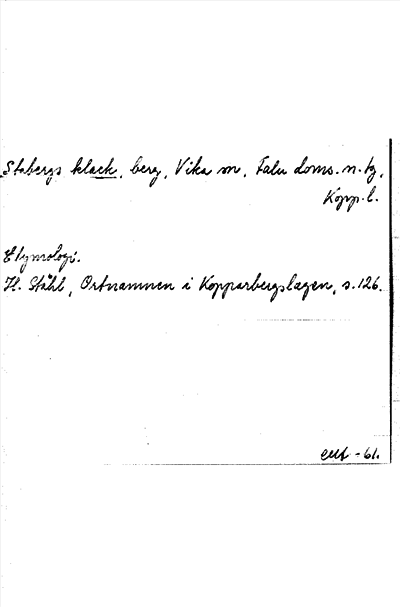 Stabergs klack, berg, Vika sn, Falu doms. n. tg,
Kopp. l.
Etymologi.
H. Ståhl, Ortnamnen i Kopparbergslagen, s. 126.
-61.